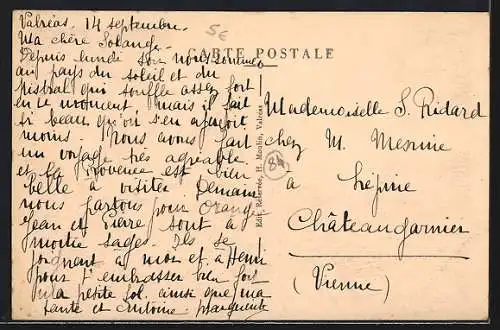 Valréas, 14 septembre.
5€
Ma chère Solange.
CARTE POSTALE
Depuis lundi soir nous sommes
au pays du soleil et du
mistral qui souffle assez fort
en ce moment, mais il fait
si beau qu'on s'en aperçoit
moins. Nous avons fait
un voyage très agréable
et la Provence est bien
belle à visiter. Demain
nous partons pour Orange
Jean et Pierre sont à
moitié sages. Ils se
joignent à moi et à Henri
pour t'embrasser bien fort
ma petite Sol. ainsi que ma
tante et Antoine. Marguerite
Edit. Réservée, H. Moulin, Valréas
84
Mademoiselle S. Ridard
chez M. Mesmine
à Lépine
Châteaugarnier
(Vienne)